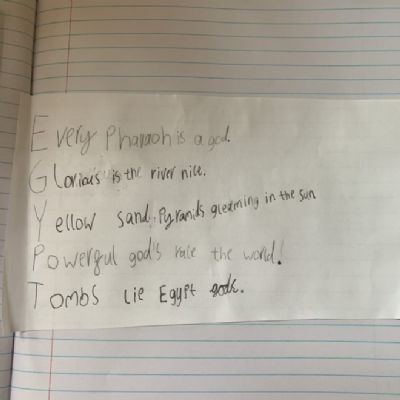 Every Pharaoh is a god.
Glorious is the river nile.
Yellow sand, Pyramids gleaming in the sun
Powerful god's rule the world!
Tombs lie Egypt gods.